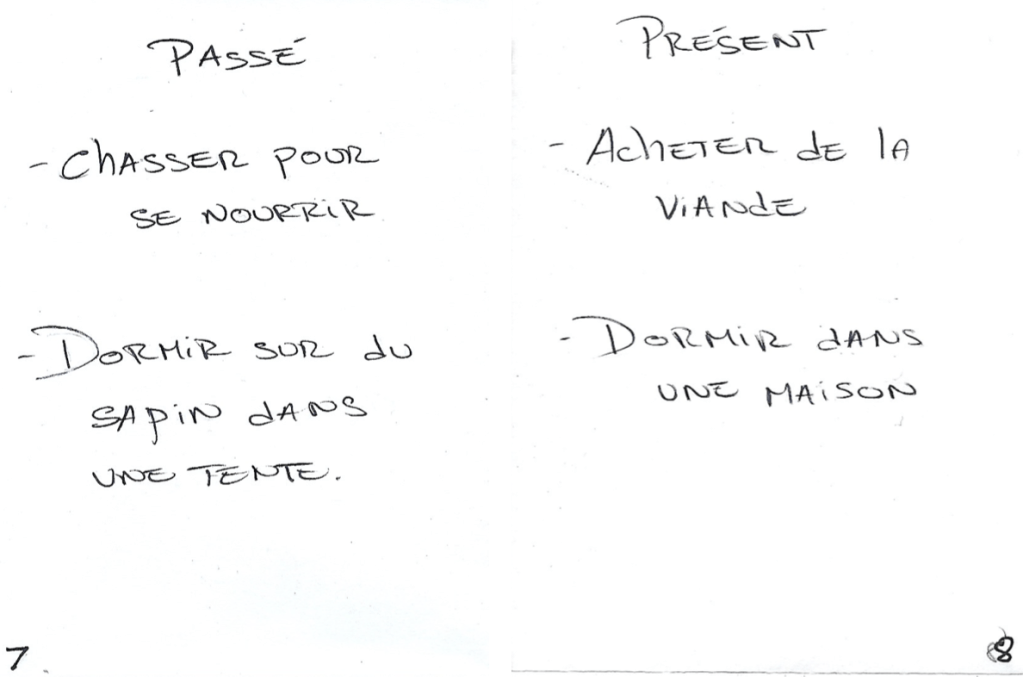 PASSÉ
- Chasser pour
se nourrir
- Dormir sur du
sapin dans
une tente.
7
PRÉSENT
- Acheter de la
viande
- Dormir dans
une maison
8